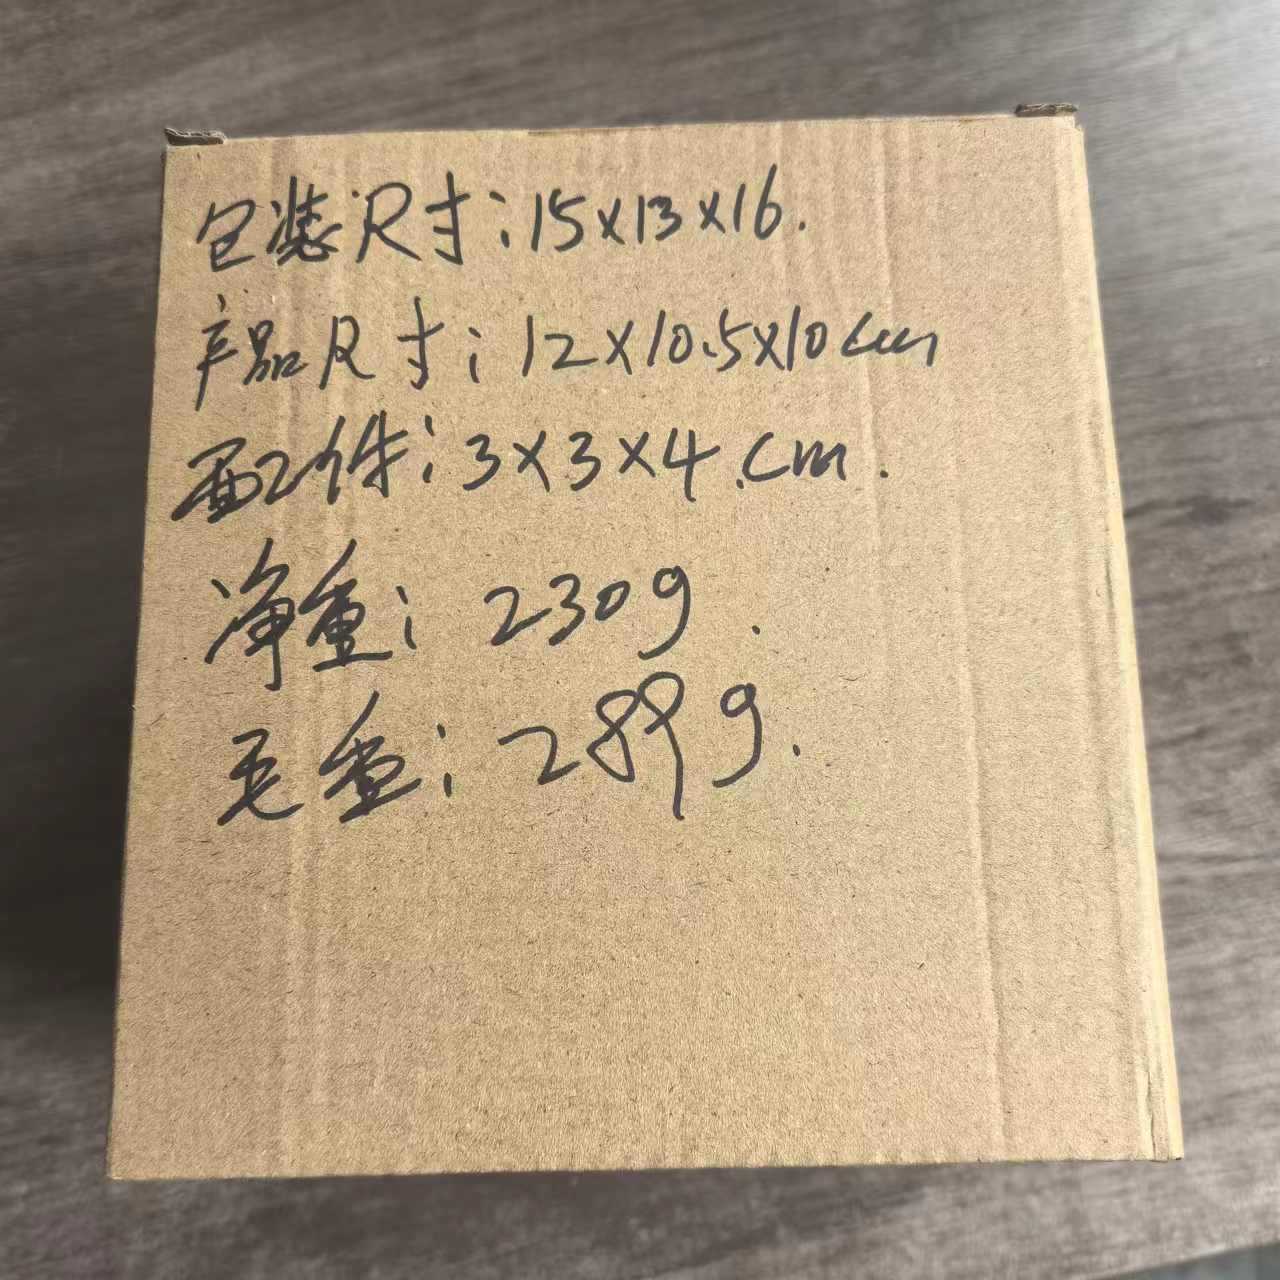 包装尺寸:15x13x16.
产品尺寸:12x10.5x10cm
配件:3x3x4.cm.
净重:230g.
毛重:289g.